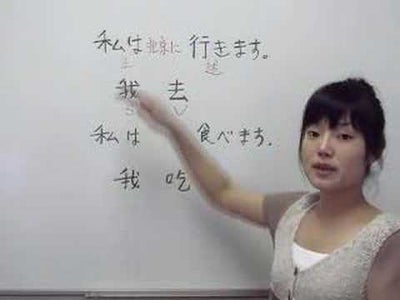 私は東京に行きます。
主 述
我 去
S V
私は 食べます.
我 吃